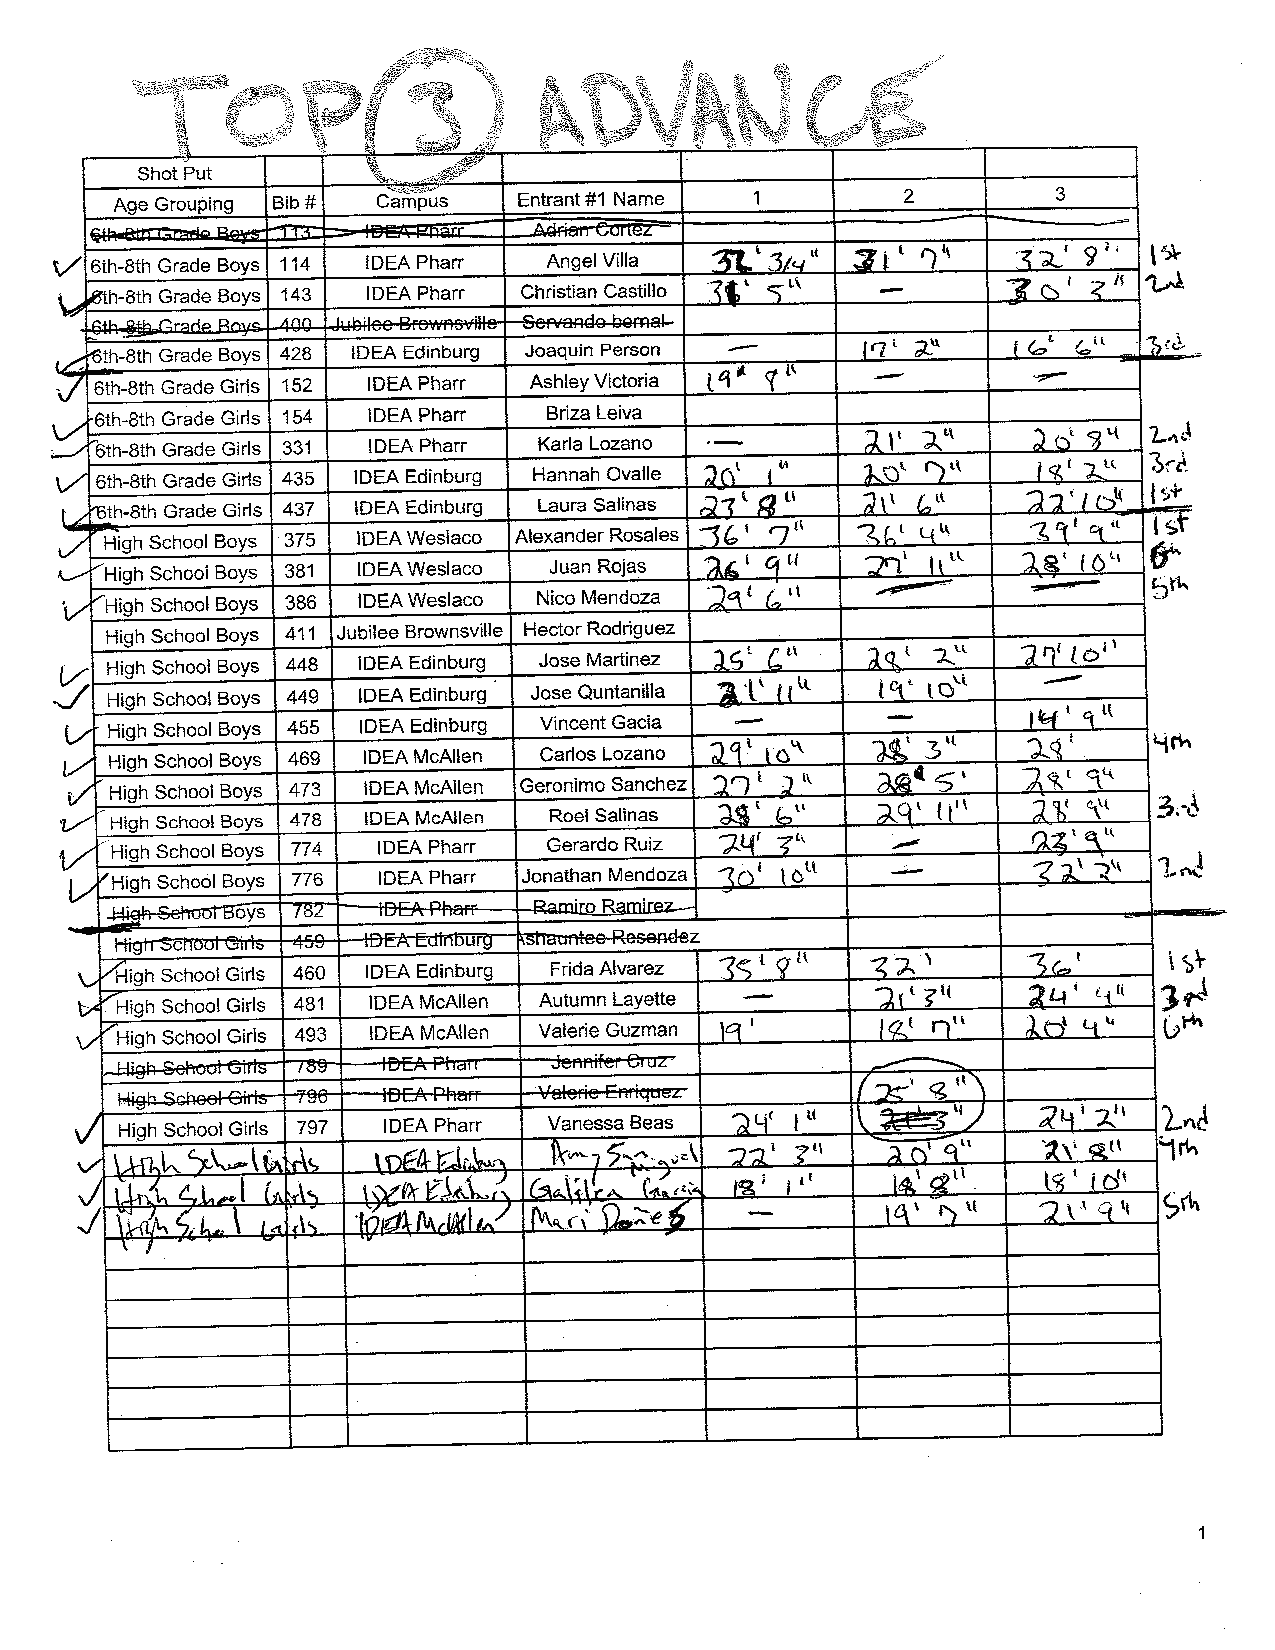 TOP 3 ADVANCE
Shot Put
Age Grouping Bib # Campus Entrant #1 Name 1 2 3
6th-8th Grade Boys 113 IDEA Pharr Adrian Cortez
6th-8th Grade Boys 114 IDEA Pharr Angel Villa 32' 3/4" 31' 7" 32' 8" 1st
6th-8th Grade Boys 143 IDEA Pharr Christian Castillo 5" — 30' 3" 2nd
6th-8th Grade Boys 400 Jubilee Brownsville Servando bernal
6th-8th Grade Boys 428 IDEA Edinburg Joaquin Person — 17' 2" 16' 6" 3rd
6th-8th Grade Girls 152 IDEA Pharr Ashley Victoria 19' 8" — —
6th-8th Grade Girls 154 IDEA Pharr Briza Leiva
6th-8th Grade Girls 331 IDEA Pharr Karla Lozano — 21' 2" 20' 8" 2nd
6th-8th Grade Girls 435 IDEA Edinburg Hannah Ovalle 20' 1" 20' 7" 18' 2" 3rd
6th-8th Grade Girls 437 IDEA Edinburg Laura Salinas 23' 8" 21' 6" 22' 10" 1st
High School Boys 375 IDEA Weslaco Alexander Rosales 36' 7" 36' 4" 39' 9" 1st
High School Boys 381 IDEA Weslaco Juan Rojas 26' 9" 27' 11" 28' 10" 6th
High School Boys 386 IDEA Weslaco Nico Mendoza 29' 6" — — 5th
High School Boys 411 Jubilee Brownsville Hector Rodriguez
High School Boys 448 IDEA Edinburg Jose Martinez 25' 6" 28' 2" 27' 10"
High School Boys 449 IDEA Edinburg Jose Quntanilla 21' 11" 19' 10" —
High School Boys 455 IDEA Edinburg Vincent Gacia — — 14' 9"
High School Boys 469 IDEA McAllen Carlos Lozano 29' 10" 28' 3" 28' 4th
High School Boys 473 IDEA McAllen Geronimo Sanchez 27' 2" 28' 5' 28' 9"
High School Boys 478 IDEA McAllen Roel Salinas 28' 6" 29' 11" 28' 9" 3rd
High School Boys 774 IDEA Pharr Gerardo Ruiz 24' 3" — 23' 9"
High School Boys 776 IDEA Pharr Jonathan Mendoza 30' 10" — 32' 2" 2nd
High School Boys 782 IDEA Pharr Ramiro Ramirez
High School Girls 459 IDEA Edinburg Ashauntee Resendez
High School Girls 460 IDEA Edinburg Frida Alvarez 35' 8" 32' 36' 1st
High School Girls 481 IDEA McAllen Autumn Layette — 21' 3" 24' 4" 3rd
High School Girls 493 IDEA McAllen Valerie Guzman 19' 18' 7" 20' 4" 6th
High School Girls 789 IDEA Pharr Jennifer Cruz
High School Girls 796 IDEA Pharr Valerie Enriquez
25' 8"
High School Girls 797 IDEA Pharr Vanessa Beas 24' 1" 24' 2" 2nd
High School Girls IDEA Edinburg Amy San Miguel 22' 3" 20' 9" 21' 8" 4th
High School Girls IDEA Edinburg Galilea Garcia 18' 1" 18' 8" 18' 10"
High School Girls IDEA McAllen Mari — 19' 7" 21' 9" 5th
1